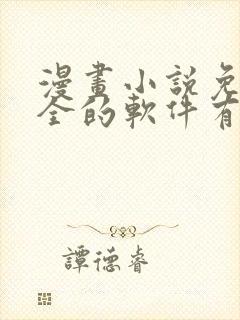 漫畫小説免
全的軟件有
譚德睿